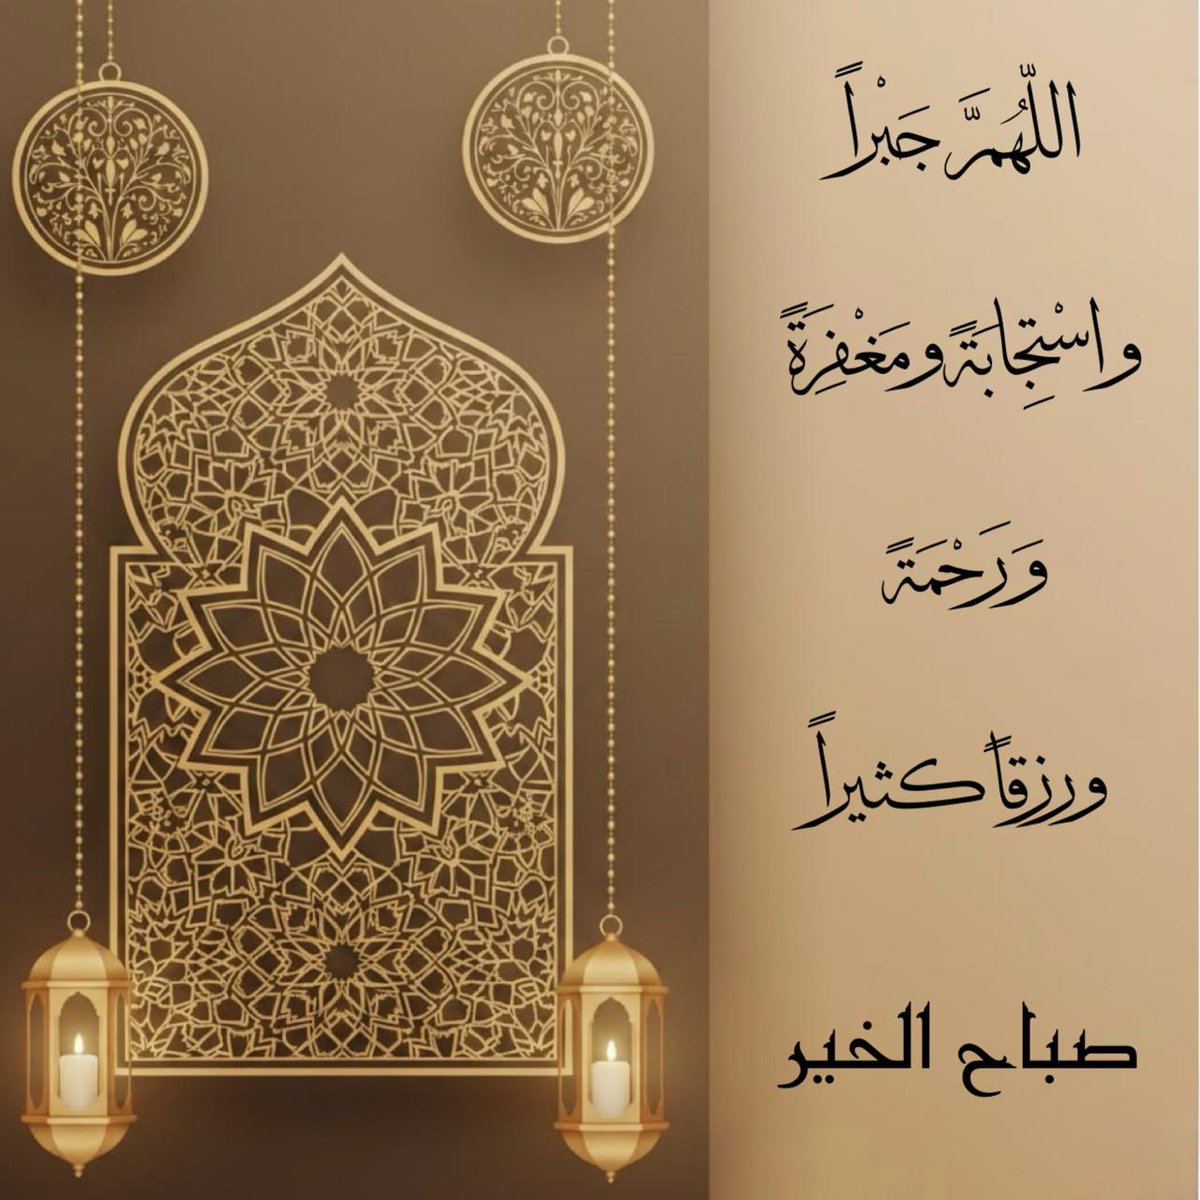 اللّهُمَّ جَبْراً
واسْتِجابَةً ومَغْفِرَةً
وَرَحْمَةً
ورزقاً كثيراً
صباح الخير